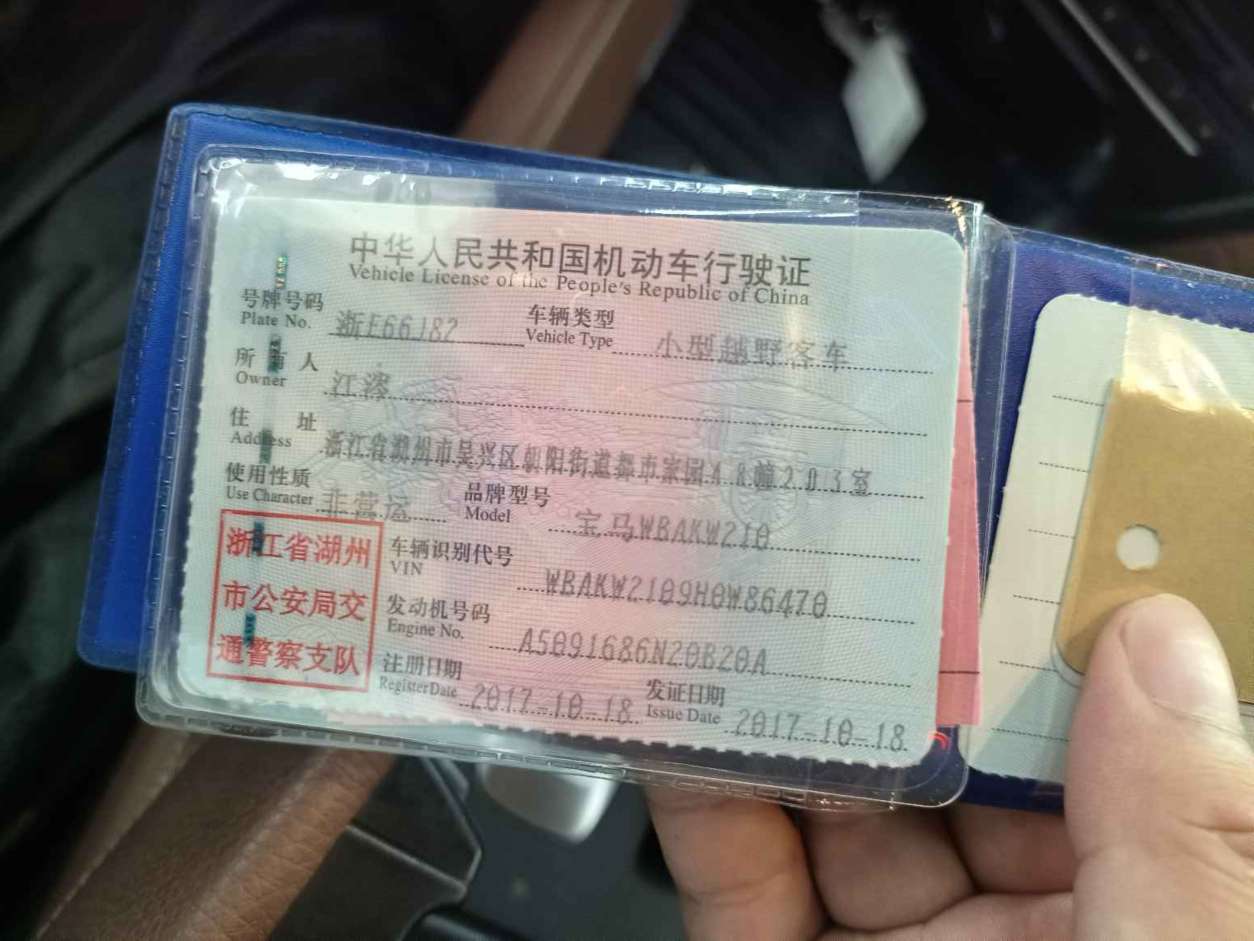 中华人民共和国机动车行驶证
Vehicle License of the People's Republic of China
号牌号码 浙E66J82 车辆类型 小型越野客车
Plate No. Vehicle Type
所有人 江漛
Owner
住址 浙江省湖州市吴兴区朝阳街道都市家园48幢203室
Address
使用性质 非营运 品牌型号 宝马WBAKW210
Use Character Model
浙江省湖州
市公安局交
通警察支队
车辆识别代号 WBAKW2109H0W86470
VIN
发动机号码 A5091686N20B20A
Engine No.
注册日期 2017-10-18 发证日期 2017-10-18
Register Date Issue Date